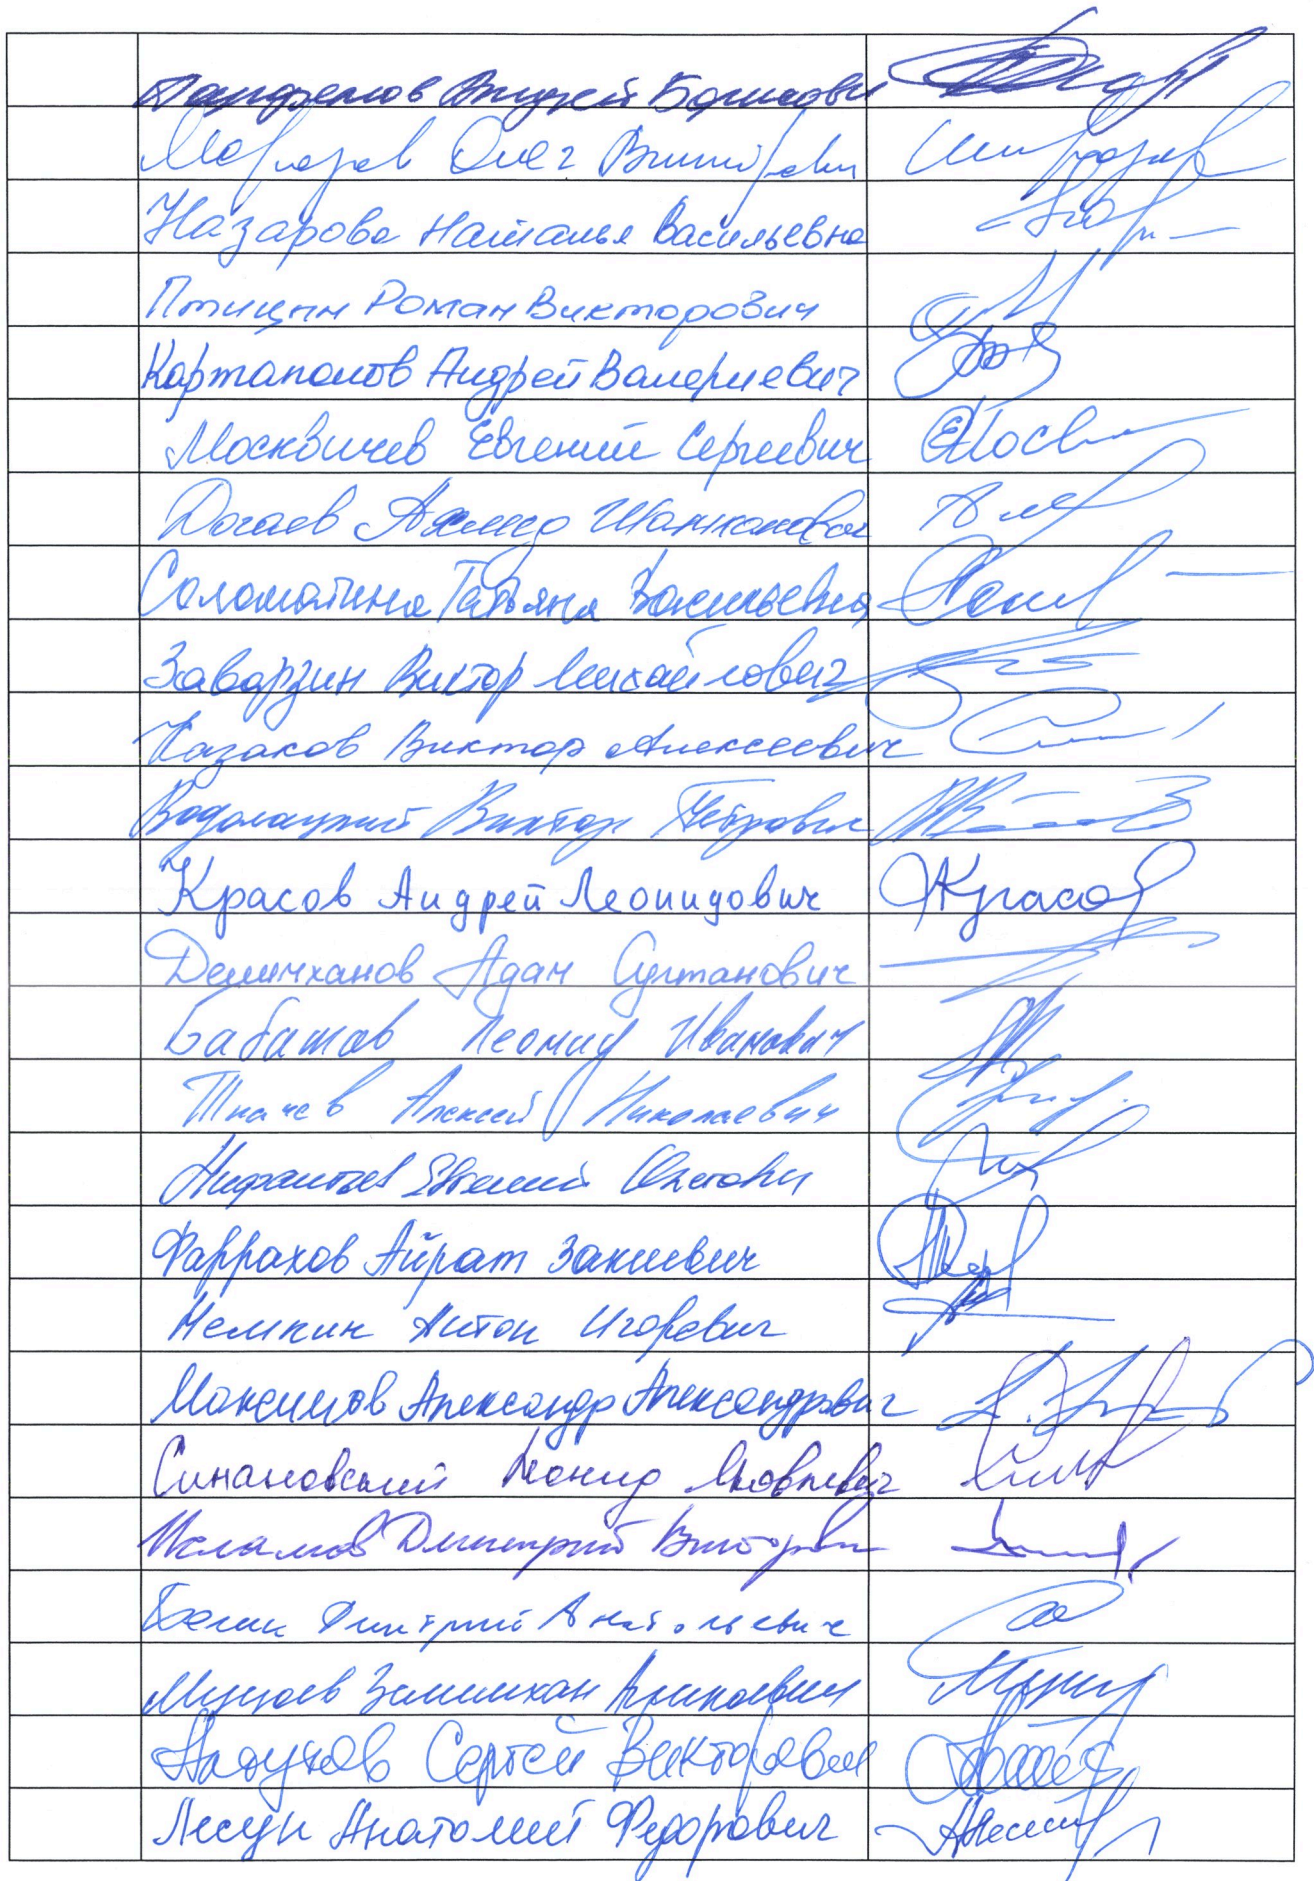 Парфенов Андрей Борисович
Морозов Олег Викторович
Назарова Наталья Васильевна
Птицын Роман Викторович
Картаполов Андрей Валериевич
Москвичев Евгений Сергеевич Мосв
Догаев Ахмед Шамханович
Соломатина Татьяна Васильевна
Заварзин Виктор Михайлович
Казаков Виктор Алексеевич
Водолацкий Виктор Петрович
Красов Андрей Леонидович Красов
Делимханов Адам Султанович
Бабашов Леонид Иванович
Ткачев Алексей Николаевич
Нифантьев Евгений Олегович
Фаррахов Айрат Закиевич
Немкин Антон Игоревич
Максимов Александр Александрович
Симановский Леонид Яковлевич
Исламов Дмитрий Викторович
Белик Дмитрий Анатольевич
Муцоев Зелимхан Аликоевич
Сергей Викторович
Лесун Анатолий Федорович